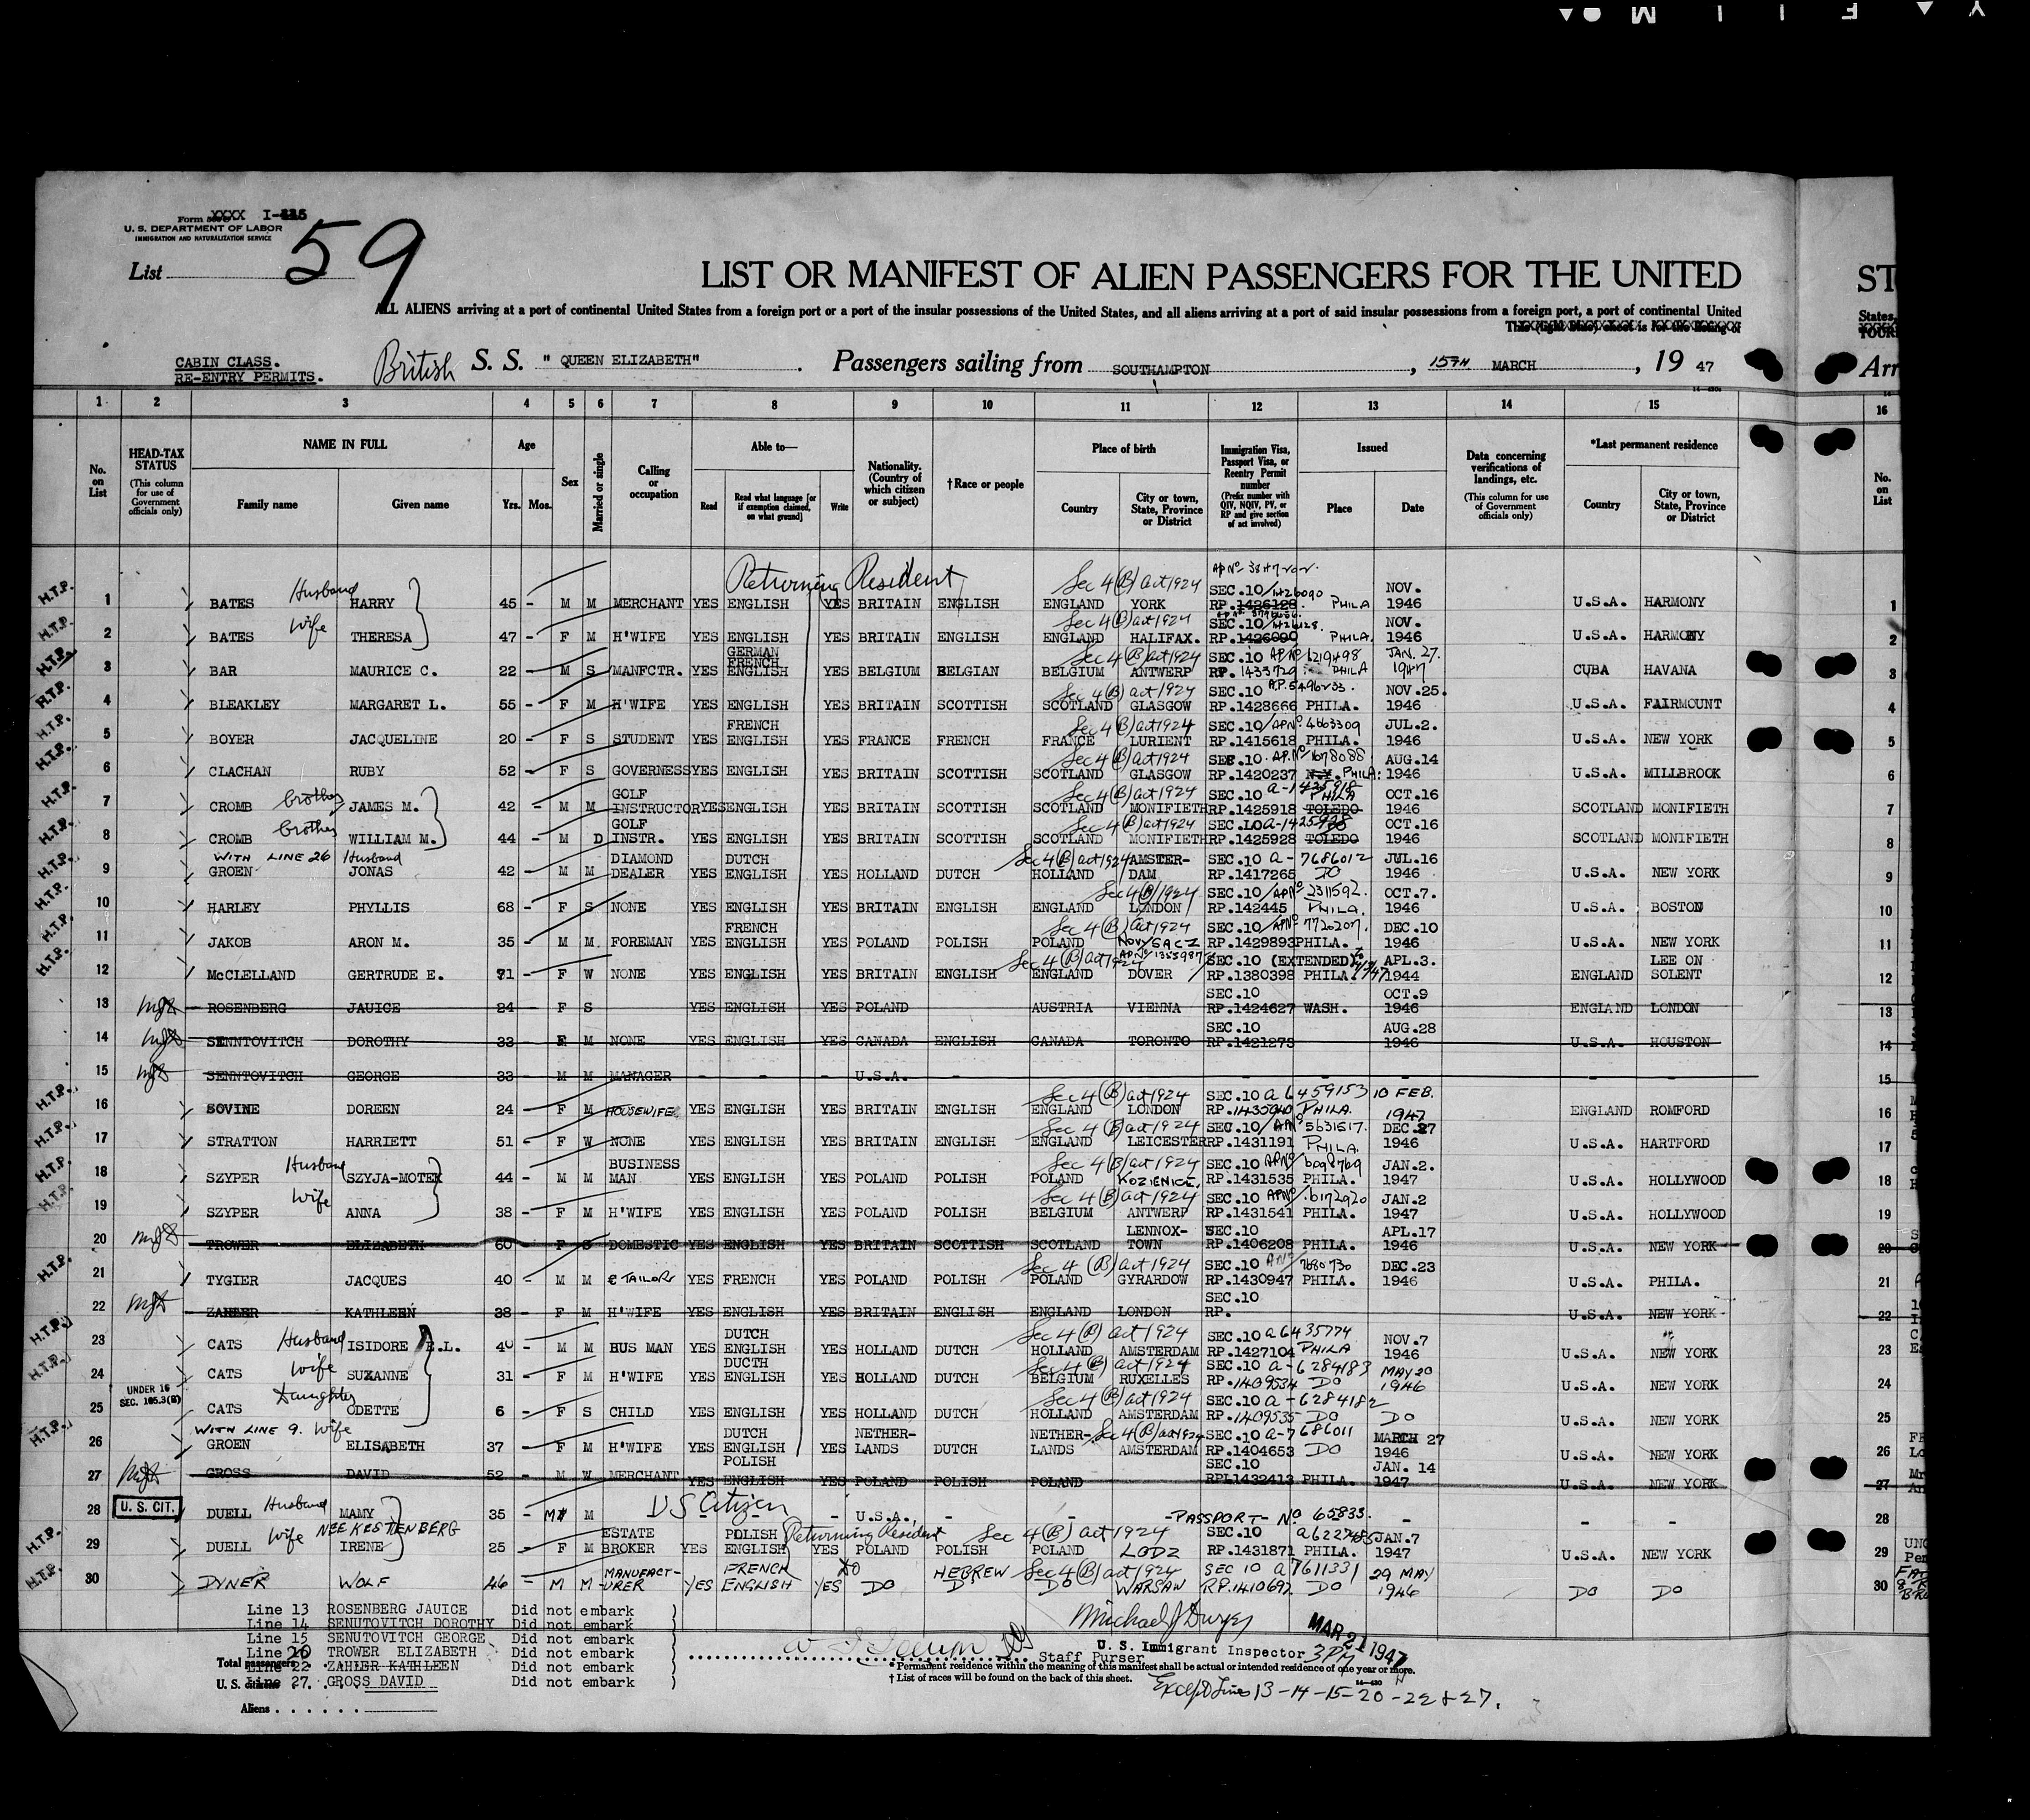 Y ▲ F I I M ●▲
Form XXXX I-415
U. S. DEPARTMENT OF LABOR
IMMIGRATION AND NATURALIZATION SERVICE
List 59
LIST OR MANIFEST OF ALIEN PASSENGERS FOR THE UNITED
ALL ALIENS arriving at a port of continental United States from a foreign port or a port of the insular possessions of the United States, and all aliens arriving at a port of said insular possessions from a foreign port, a port of continental United
CABIN CLASS.
RE-ENTRY PERMITS.
British S. S. " QUEEN ELIZABETH" . Passengers sailing from SOUTHAMPTON , 15TH MARCH , 19 47
1 2 3 4 5 6 7 8 9 10 11 12 13 14 15 16
No. on List
HEAD-TAX STATUS (This column for use of Government officials only)
NAME IN FULL Family name Given name
Age Yrs. Mos.
Sex
Married or single
Calling or occupation
Able to— Read Read what language [or if exemption claimed, on what ground] Write
Nationality. (Country of which citizen or subject)
†Race or people
Place of birth Country City or town, State, Province or District
Immigration Visa, Passport Visa, or Reentry Permit number (Prefix number with QIV, NQIV, PV, or RP and give section of act involved)
Issued Place Date
Data concerning verifications of landings, etc. (This column for use of Government officials only)
*Last permanent residence Country City or town, State, Province or District
No. on List
Returning Resident
H.T.P. 1 BATES Husband HARRY 45 - M M MERCHANT YES ENGLISH YES BRITAIN ENGLISH Sec 4 (B) act 1924 ENGLAND YORK SEC.10 RP.1426128 PHILA NOV. 1946 U.S.A. HARMONY 1
H.T.P. 2 BATES Wife THERESA 47 - F M H'WIFE YES ENGLISH YES BRITAIN ENGLISH Sec 4 (B) act 1924 ENGLAND HALIFAX. SEC.10 RP.1426090 PHILA. NOV. 1946 U.S.A. HARMONY 2
H.T.P. 3 BAR MAURICE C. 22 - M S MANFCTR. YES GERMAN FRENCH ENGLISH YES BELGIUM BELGIAN Sec 4 (B) act 1924 BELGIUM ANTWERP SEC.10 AP.No 1219498 RP. 1433729 PHILA JAN. 27. 1947 CUBA HAVANA 3
H.T.P. 4 BLEAKLEY MARGARET L. 55 - F M H'WIFE YES ENGLISH YES BRITAIN SCOTTISH Sec 4 (B) act 1924 SCOTLAND GLASGOW SEC.10 A.P.5496233. RP.1428666 PHILA. NOV.25. 1946 U.S.A. FAIRMOUNT 4
H.T.P. 5 BOYER JACQUELINE 20 - F S STUDENT YES FRENCH ENGLISH YES FRANCE FRENCH Sec 4 (B) act 1924 FRANCE LURIENT SEC.10/APNo. 4663309 RP.1415618 PHILA. JUL.2. 1946 U.S.A. NEW YORK 5
H.T.P. 6 CLACHAN RUBY 52 - F S GOVERNESS YES ENGLISH YES BRITAIN SCOTTISH Sec 4 (B) act 1924 SCOTLAND GLASGOW SEC.10. A.P.No 1678088 RP.1420237 N.Y. PHILA. AUG.14 1946 U.S.A. MILLBROOK 6
H.T.P. 7 CROMB brother JAMES M. 42 - M M GOLF INSTRUCTOR YES ENGLISH YES BRITAIN SCOTTISH Sec 4 (B) act 1924 SCOTLAND MONIFIETH SEC.10 a-1425918 RP.1425918 PHILA TOLEDO OCT.16 1946 SCOTLAND MONIFIETH 7
H.T.P. 8 CROMB brother WILLIAM M. 44 - M D GOLF INSTR. YES ENGLISH YES BRITAIN SCOTTISH Sec 4 (B) act 1924 SCOTLAND MONIFIETH SEC.10 a-1425928 RP.1425928 TOLEDO OCT.16 1946 SCOTLAND MONIFIETH 8
WITH LINE 26 Husband
H.T.P. 9 GROEN JONAS 42 - M M DIAMOND DEALER YES DUTCH ENGLISH YES HOLLAND DUTCH Sec 4 (B) act 1924 HOLLAND AMSTER-DAM SEC.10 a-7686012 RP.1417265 DO JUL.16 1946 U.S.A. NEW YORK 9
H.T.P. 10 HARLEY PHYLLIS 68 - F S NONE YES ENGLISH YES BRITAIN ENGLISH Sec 4 (B) 1924 ENGLAND LONDON SEC.10/APNo 2311592. RP.142445 PHILA. OCT.7. 1946 U.S.A. BOSTON 10
H.T.P. 11 JAKOB ARON M. 35 - M M. FOREMAN YES FRENCH ENGLISH YES POLAND POLISH Sec 4 (B) act 1924 POLAND NOVY SACZ SEC.10 /APNo 7720207. RP.1429893 PHILA. DEC.10 1946 U.S.A. NEW YORK 11
H.T.P. 12 McCLELLAND GERTRUDE E. 71 - F W NONE YES ENGLISH YES BRITAIN ENGLISH Sec 4 (B) act 1924 ENGLAND DOVER SEC.10 (EXTENDED) RP.1380398 PHILA. APL.3. 1944 ENGLAND LEE ON SOLENT 12
13 ROSENBERG JAUICE 24 - F S YES ENGLISH YES POLAND AUSTRIA VIENNA SEC.10 RP.1424627 WASH. OCT.9 1946 ENGLAND LONDON 13
14 SENNTOVITCH DOROTHY 33 - F M NONE YES ENGLISH YES CANADA ENGLISH CANADA TORONTO SEC.10 RP.1421273 AUG.28 1946 U.S.A. HOUSTON 14
15 SENNTOVITCH GEORGE 33 - M M MANAGER - - - U.S.A. - - - - - - - - 15
H.T.P. 16 SOVINE DOREEN 24 - F M HOUSEWIFE YES ENGLISH YES BRITAIN ENGLISH Sec 4 (B) act 1924 ENGLAND LONDON SEC.10 a 6459153 RP.1435940 PHILA. 10 FEB. 1947 ENGLAND ROMFORD 16
H.T.P. 17 STRATTON HARRIETT 51 - F W NONE YES ENGLISH YES BRITAIN ENGLISH Sec 4 (B) act 1924 ENGLAND LEICESTER SEC.10/ APNo 5631517. RP.1431191 PHILA. DEC.27 1946 U.S.A. HARTFORD 17
H.T.P. 18 SZYPER Husband SZYJA-MOTEK 44 - M M BUSINESS MAN YES ENGLISH YES POLAND POLISH Sec 4 (B) act 1924 POLAND KOZIENICE. SEC.10 APNo/ 6098769 RP.1431535 PHILA. JAN.2. 1947 U.S.A. HOLLYWOOD 18
H.T.P. 19 SZYPER Wife ANNA 38 - F M H'WIFE YES ENGLISH YES POLAND POLISH Sec 4 (B) act 1924 BELGIUM ANTWERP SEC.10 APNo/ 6172920 RP.1431541 PHILA. JAN.2 1947 U.S.A. HOLLYWOOD 19
20 TROWER ELIZABETH 60 - F S DOMESTIC YES ENGLISH YES BRITAIN SCOTTISH SCOTLAND LENNOX-TOWN SEC.10 RP.1406208 PHILA. APL.17 1946 U.S.A. NEW YORK 20
H.T.P. 21 TYGIER JACQUES 40 - M M TAILOR YES FRENCH YES POLAND POLISH Sec 4 (B) act 1924 POLAND GYRARDOW SEC.10 7680730 RP.1430947 PHILA. DEC.23 1946 U.S.A. PHILA. 21
22 ZAHLER KATHLEEN 38 - F M H'WIFE YES ENGLISH YES BRITAIN ENGLISH ENGLAND LONDON SEC.10 RP. U.S.A. NEW YORK 22
H.T.P. 23 CATS Husband ISIDORE E.L. 40 - M M BUS MAN YES DUTCH ENGLISH YES HOLLAND DUTCH Sec 4 (B) act 1924 HOLLAND AMSTERDAM SEC.10 a 6435774 RP.1427104 PHILA NOV.7 1946 U.S.A. NEW YORK 23
H.T.P. 24 CATS Wife SUZANNE 31 - F M H'WIFE YES DUCTH ENGLISH YES HOLLAND DUTCH Sec 4 (B) act 1924 BELGIUM RUXELLES SEC.10 a-6284183 RP.1409534 DO MAY 20 1946 U.S.A. NEW YORK 24
UNDER 16 SEC. 105.3(E) 25 CATS Daughter ODETTE 6 - F S CHILD YES ENGLISH YES HOLLAND DUTCH Sec 4 (B) act 1924 HOLLAND AMSTERDAM SEC.10 a-6284182 RP.1409535 DO DO U.S.A. NEW YORK 25
WITH LINE 9. Wife
H.T.P. 26 GROEN ELISABETH 37 - F M H'WIFE YES DUTCH ENGLISH YES NETHER-LANDS DUTCH NETHER-LANDS Sec 4 (B) act 1924 AMSTERDAM SEC.10 a-7686011 RP.1404653 DO MARCH 27 1946 U.S.A. NEW YORK 26
27 GROSS DAVID 52 - M W MERCHANT YES POLISH ENGLISH YES POLAND POLISH POLAND SEC.10 RP.1432413 PHILA. JAN. 14 1947 U.S.A. NEW YORK 27
U. S. CIT. 28 DUELL Husband MAMY 35 - M M US Citizen - - - U.S.A. - - - PASSPORT - No 65833. - - - 28
H.T.P. 29 DUELL Wife NEE KESTENBERG IRENE 25 - F M ESTATE BROKER YES POLISH ENGLISH YES Returning Resident POLAND POLISH Sec 4 (B) act 1924 POLAND LODZ SEC.10 RP.1431871 PHILA. JAN.7 1947 U.S.A. NEW YORK 29
H.T.P. 30 DYNER WOLF 46 - M M MANUFACT-URER YES FRENCH ENGLISH YES DO HEBREW Sec 4 (B) act 1924 DO WARSAW SEC 10 a 7611331 RP.1410697 DO 29 MAY 1946 DO DO 30
Line 13 ROSENBERG JAUICE Did not embark )
Line 14 SENUTOVITCH DOROTHY Did not embark )
Line 15 SENUTOVITCH GEORGE Did not embark )
Line 20 TROWER ELIZABETH Did not embark )
Line 22 ZAHLER KATHLEEN Did not embark )
Line 27. GROSS DAVID Did not embark )
Total passengers
U. S. citizens
Aliens . . . . . .
Michael J Dwyer
U. S. Immigrant Inspector
Staff Purser
MAR 21 1947
3 PM
* Permanent residence within the meaning of this manifest shall be actual or intended residence of one year or more.
† List of races will be found on the back of this sheet.
Except Lines 13-14-15-20-22 & 27.
ST
States,
TOUR
Arr